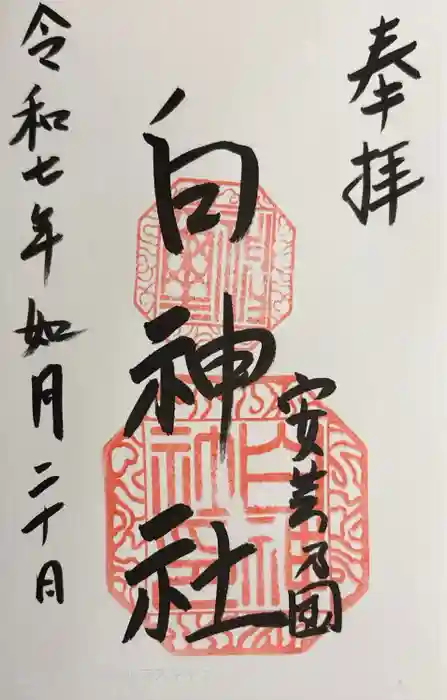 奉拝
安芸乃國
白神社
令和七年如月二十日